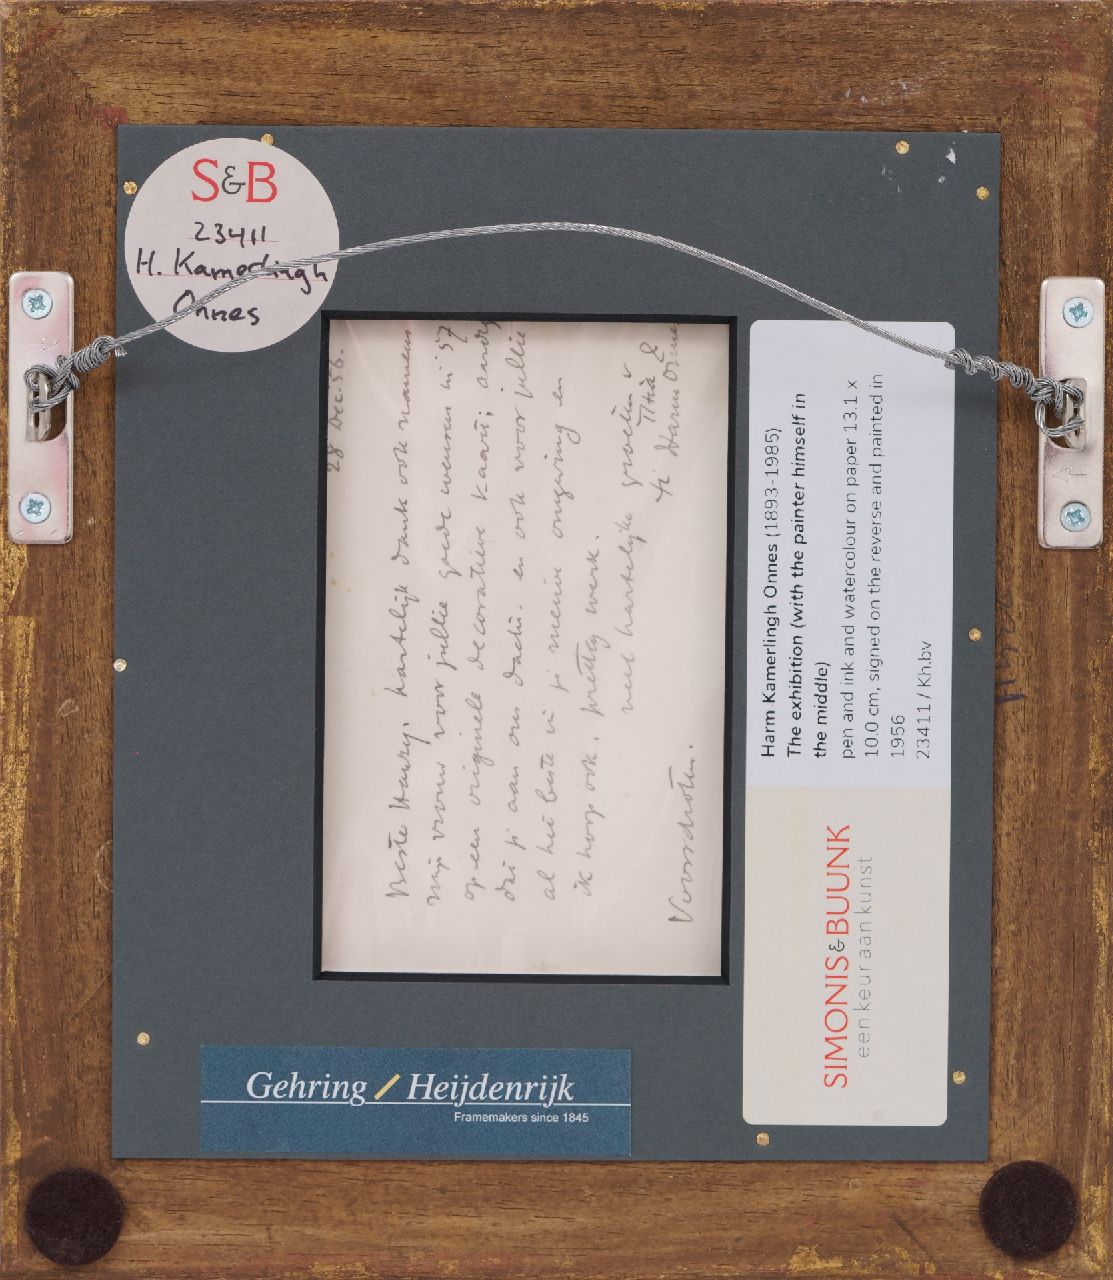 S&B
23411
H. Kamerlingh
Onnes
28 Dec. 56.
Beste Harry, hartelijk dank ook namens
mijn vrouw voor jullie goede wensen in '57
op een originele decoratieve kaart; aardig
dat je aan ons dacht. en ook voor jullie
al het beste in je nieuwe omgeving en
ik hoop ook. prettig werk.
veel hartelijke groeten v
Titia &
je Harm Onnes
Voorschoten.
Harm Kamerlingh Onnes (1893-1985)
The exhibition (with the painter himself in
the middle)
pen and ink and watercolour on paper 13.1 x
10.0 cm, signed on the reverse and painted in
1956
23411 / Kh.bv
SIMONIS&BUUNK
een keur aan kunst
Gehring / Heijdenrijk
Framemakers since 1845